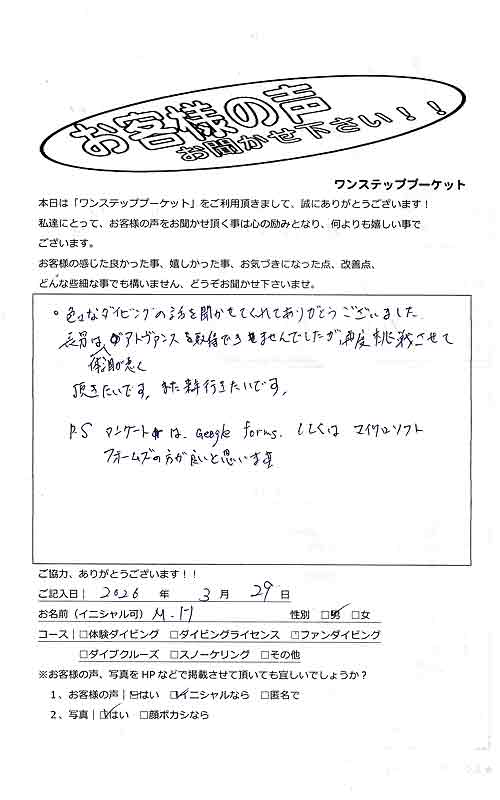 お客様の声
お聞かせ下さい！！
ワンステッププーケット
本日は「ワンステッププーケット」をご利用頂きまして、誠にありがとうございます！
私達にとって、お客様の声をお聞かせ頂く事は心の励みとなり、何よりも嬉しい事で
ございます。
お客様の感じた良かった事、嬉しかった事、お気づきになった点、改善点、
どんな些細な事でも構いません、どうぞお聞かせ下さいませ。
。色々なダイビングの話を聞かせてくれてありがとうございました
長男は、アドヴァンスを取得できませんでしたが、再度挑戦させて
体調が悪く
頂きたいです。また行きたいです。
P.S アンケートは、Google forms. もしくは マイクロソフト
フォームズの方が良いと思います
ご協力、ありがとうございます！！
ご記入日｜ 2026 年 3 月 29 日
お名前（イニシャル可） M.H 性別 □男 □女
コース｜□体験ダイビング □ダイビングライセンス □ファンダイビング
□ダイブクルーズ □スノーケリング □その他
※お客様の声、写真を HP などで掲載させて頂いても宜しいでしょうか？
1、お客様の声｜□はい □イニシャルなら □匿名で
2、写真｜□はい □顔ボカシなら